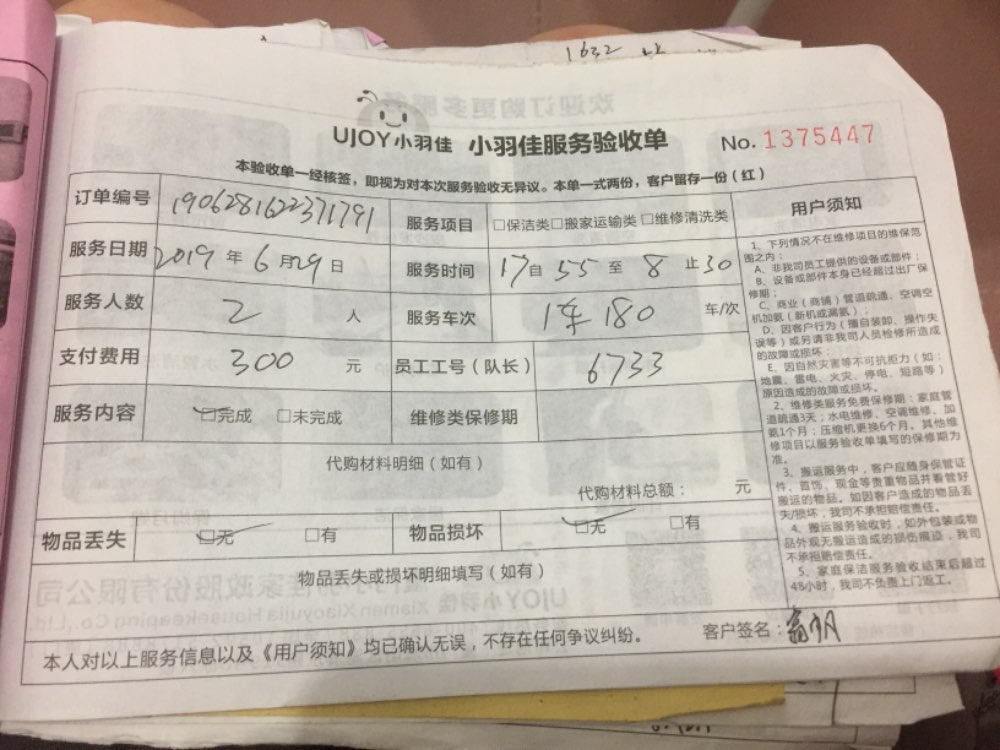 1632
UJOY小羽佳 小羽佳服务验收单 No. 1375447
本验收单一经核签，即视为对本次服务验收无异议。本单一式两份，客户留存一份（红）
订单编号 190628162237179 1 服务项目 □保洁类□搬家运输类□维修清洗类
服务日期 2019 年 6 月 29 日 服务时间 17 自 55 至 8 止 30
服务人数 2 人 服务车次 1车 180 车/次
支付费用 300 元 员工工号（队长） 6733
服务内容 □完成 □未完成 维修类保修期
代购材料明细（如有）
代购材料总额： 元
物品丢失 □无 □有 物品损坏 □无 □有
物品丢失或损坏明细填写（如有）
本人对以上服务信息以及《用户须知》均已确认无误，不存在任何争议纠纷。 客户签名：
用户须知
1、下列情况不在维修项目的维保范
围之内：
A、非我司员工提供的设备或部件；
B、设备或部件本身已经超过出厂保
修期；
C、商业（商铺）管道疏通、空调空
机加氨（新机或漏氨）；
D、因客户行为（擅自装卸、操作失
误等）或另请非我司人员检修所造成
的故障或损坏；
E、因自然灾害等不可抗拒力（如：
地震、雷电、火灾、停电、短路等）
原因造成的故障或损坏。
2、维修类服务免费保修期：家庭管
道疏通3天；水电维修、空调维修、加
氨1个月；压缩机更换6个月。其他维
修项目以服务验收单填写的保修期为
准。
3、搬运服务中，客户应随身保管证
件、首饰、现金等贵重物品并看管好
搬运的物品。如因客户造成的物品丢
失/损坏，我司不承担赔偿责任。
4、搬运服务验收时，如外包装或物
品外观无搬运造成的损伤痕迹，我司
不承担赔偿责任。
5、家庭保洁服务验收结束后超过
48小时，我司不负责上门返工。